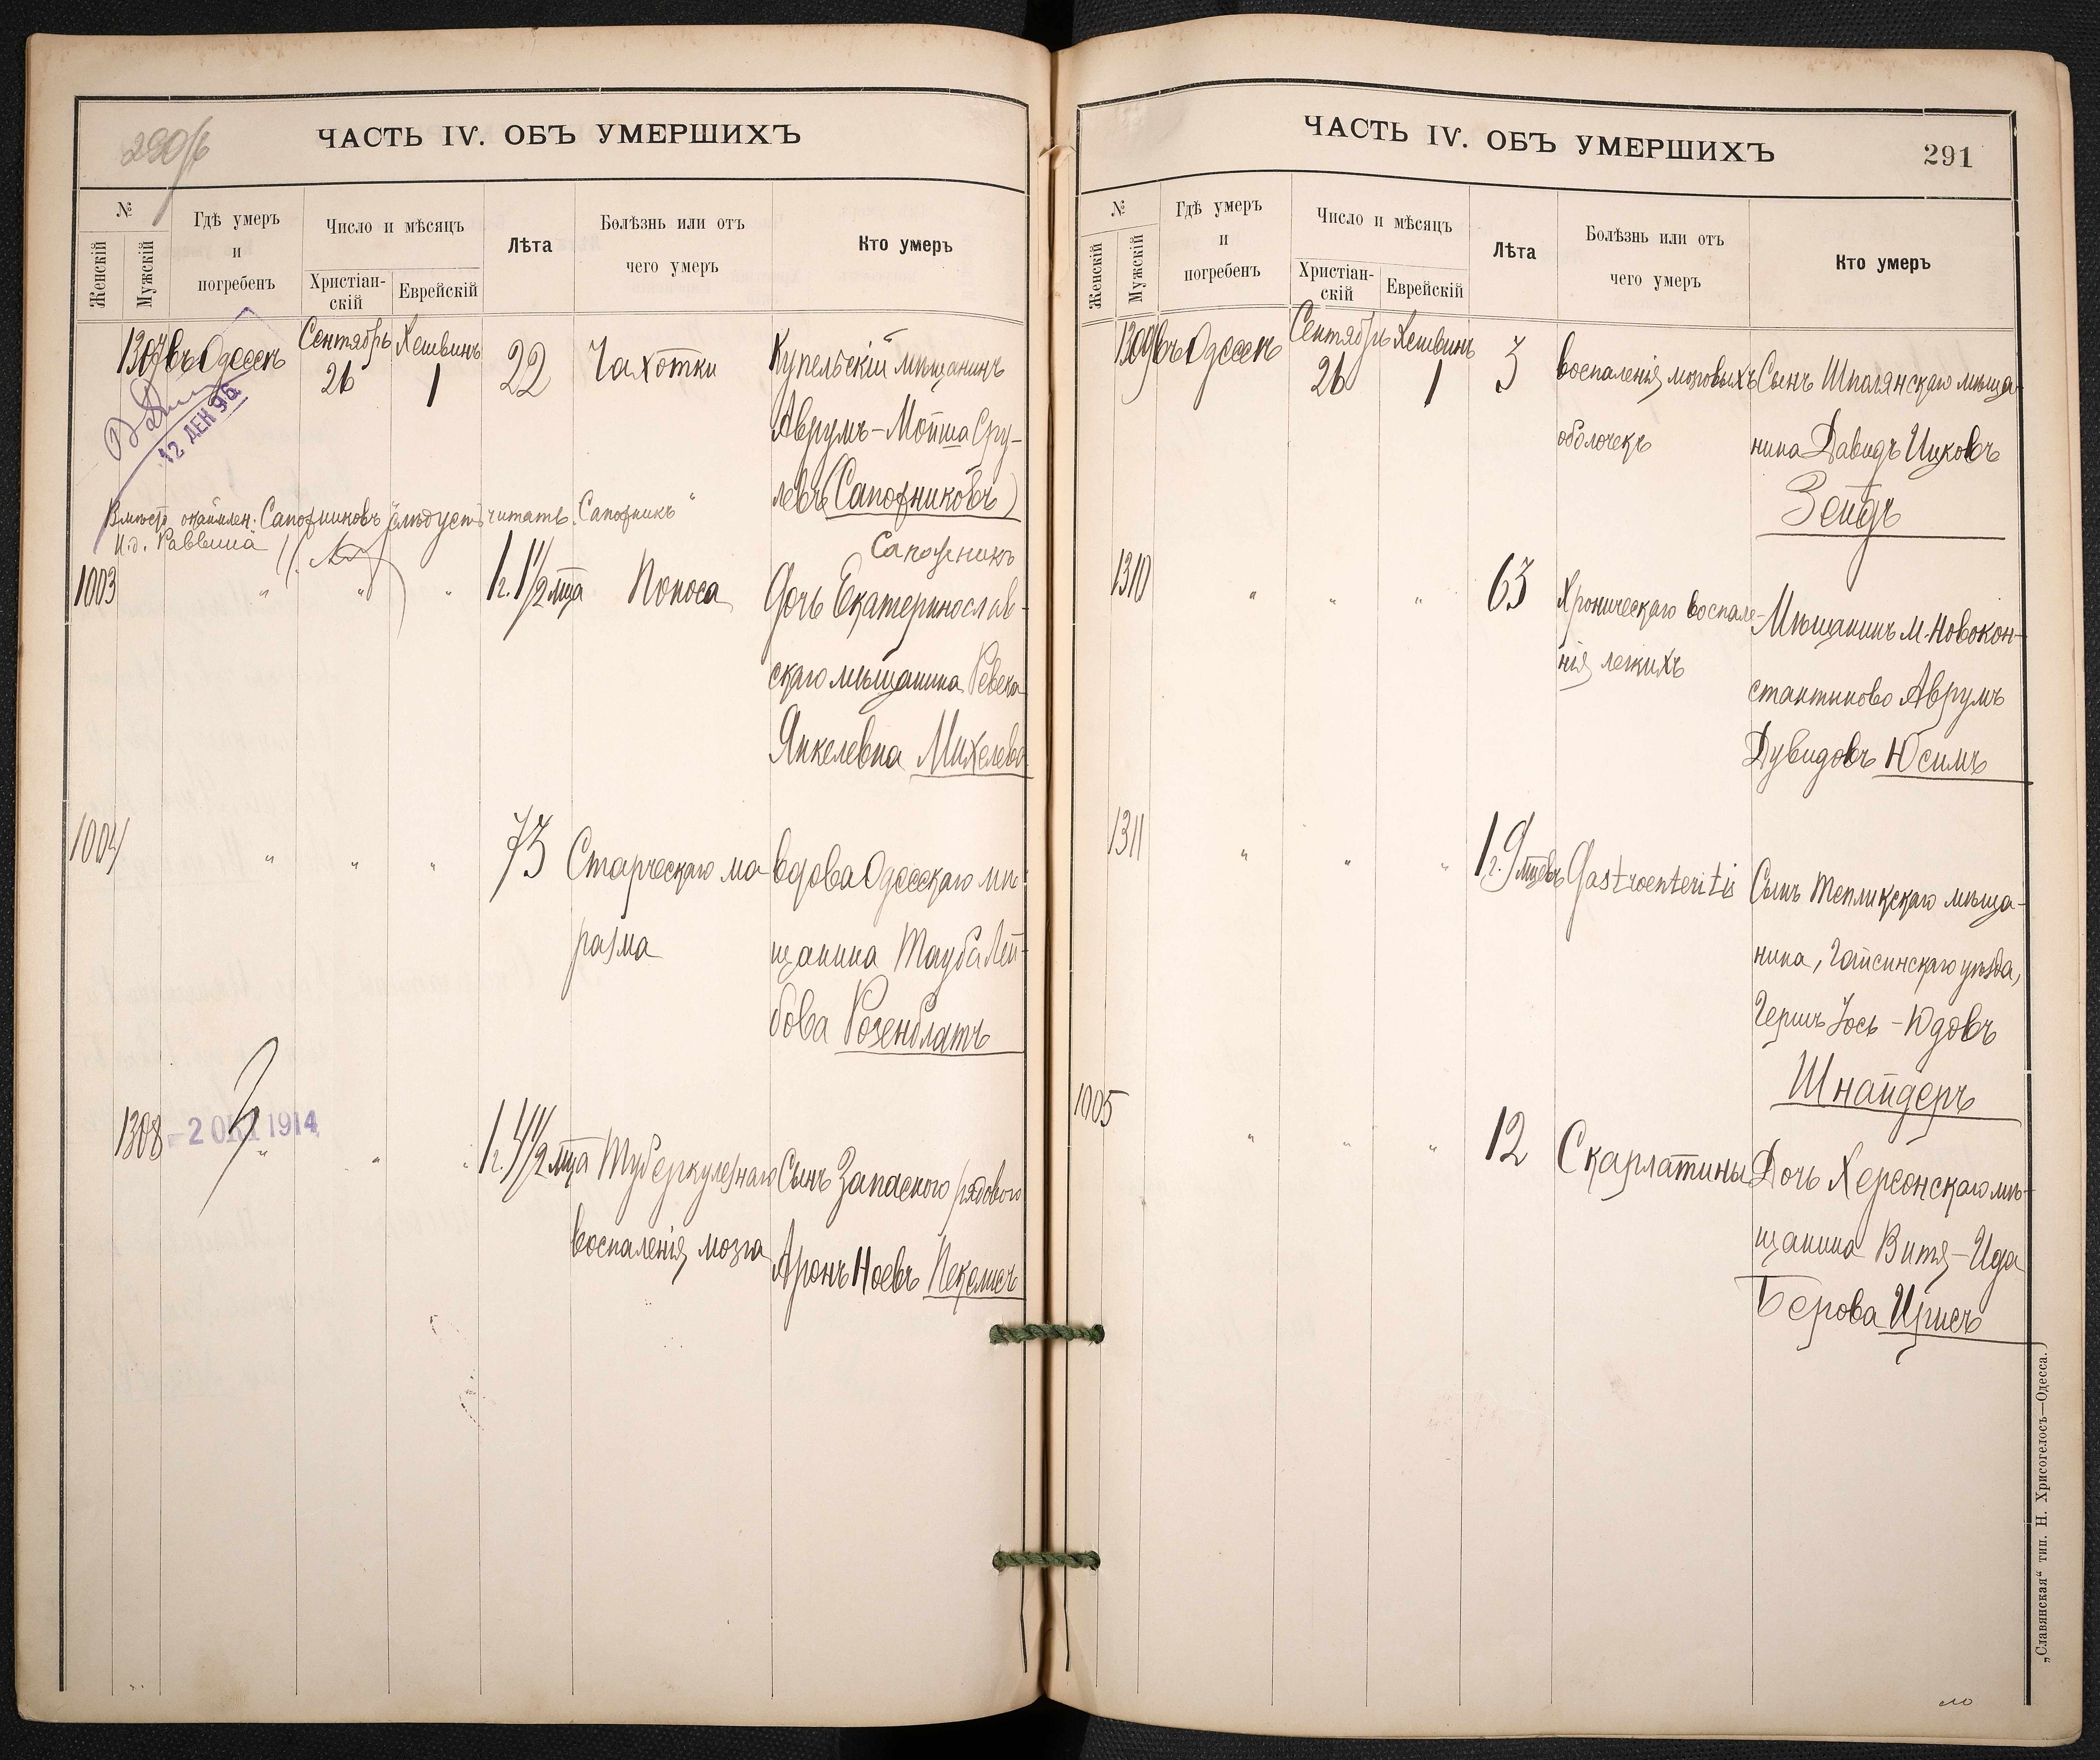 290/б
ЧАСТЬ IV. ОБЪ УМЕРШИХЪ
№
Женскій
Мужскій
Гдѣ умеръ
и
погребенъ
Число и мѣсяцъ
Христіан-
скій
Еврейскій
Лѣта
Болѣзнь или отъ
чего умеръ
Кто умеръ
1307 въ Одессѣ Сентябрь 26 Хешвинъ 1 22 Чахотки Купельскій мѣщанинъ
Аврумъ-Мойша Сру-
левъ (Сапожниковъ)
12 ДЕК 96
Вмѣсто Сапожниковъ слѣдуетъ читать „Сапожникъ"
И.д. Раввина
Сапожникъ
1003 " " " 1 г. 1½ мца Поноса Дочь Екатеринослав-
скаго мѣщанина Ревека
Янкелевна Михелева
1004 " " " 73 Старческаго ма- Вдова Одесскаго мѣ-
разма щанина Тауба Лей-
бова Розенблатъ
1308 - 2 ОКТ 1914
" " " 1 г. 4½ мца Туберкулезнаго Сынъ Запаснаго рядового
воспаленія мозга Аронъ Ноевъ Пекелисъ
ЧАСТЬ IV. ОБЪ УМЕРШИХЪ
291
№
Женскій
Мужскій
Гдѣ умеръ
и
погребенъ
Число и мѣсяцъ
Христіан-
скій
Еврейскій
Лѣта
Болѣзнь или отъ
чего умеръ
Кто умеръ
1309 въ Одессѣ Сентябрь 26 Хешвинъ 1 3 Воспаленія мозговыхъ Сынъ Шполянскаго мѣща-
оболочекъ нина Давидъ Ицковъ
Зейдъ
1310 " " " 63 Хроническаго воспале- Мѣщанинъ м. Новокон-
нія легкихъ стантиново Аврумъ
Дувидовъ Юсимъ
1311 " " " 1 г. 9 мцевъ Gastroenteritis Сынъ Тепликскаго мѣща-
нина, Гайсинскаго уѣзда,
Гершъ Іось-Юдовъ
Шнайдеръ
1005 " " " 12 Скарлатины Дочь Херсонскаго мѣ-
щанина Витя-Ида
Берова
„Славянская“ тип. Н. Хрисогелосъ—Одесса.